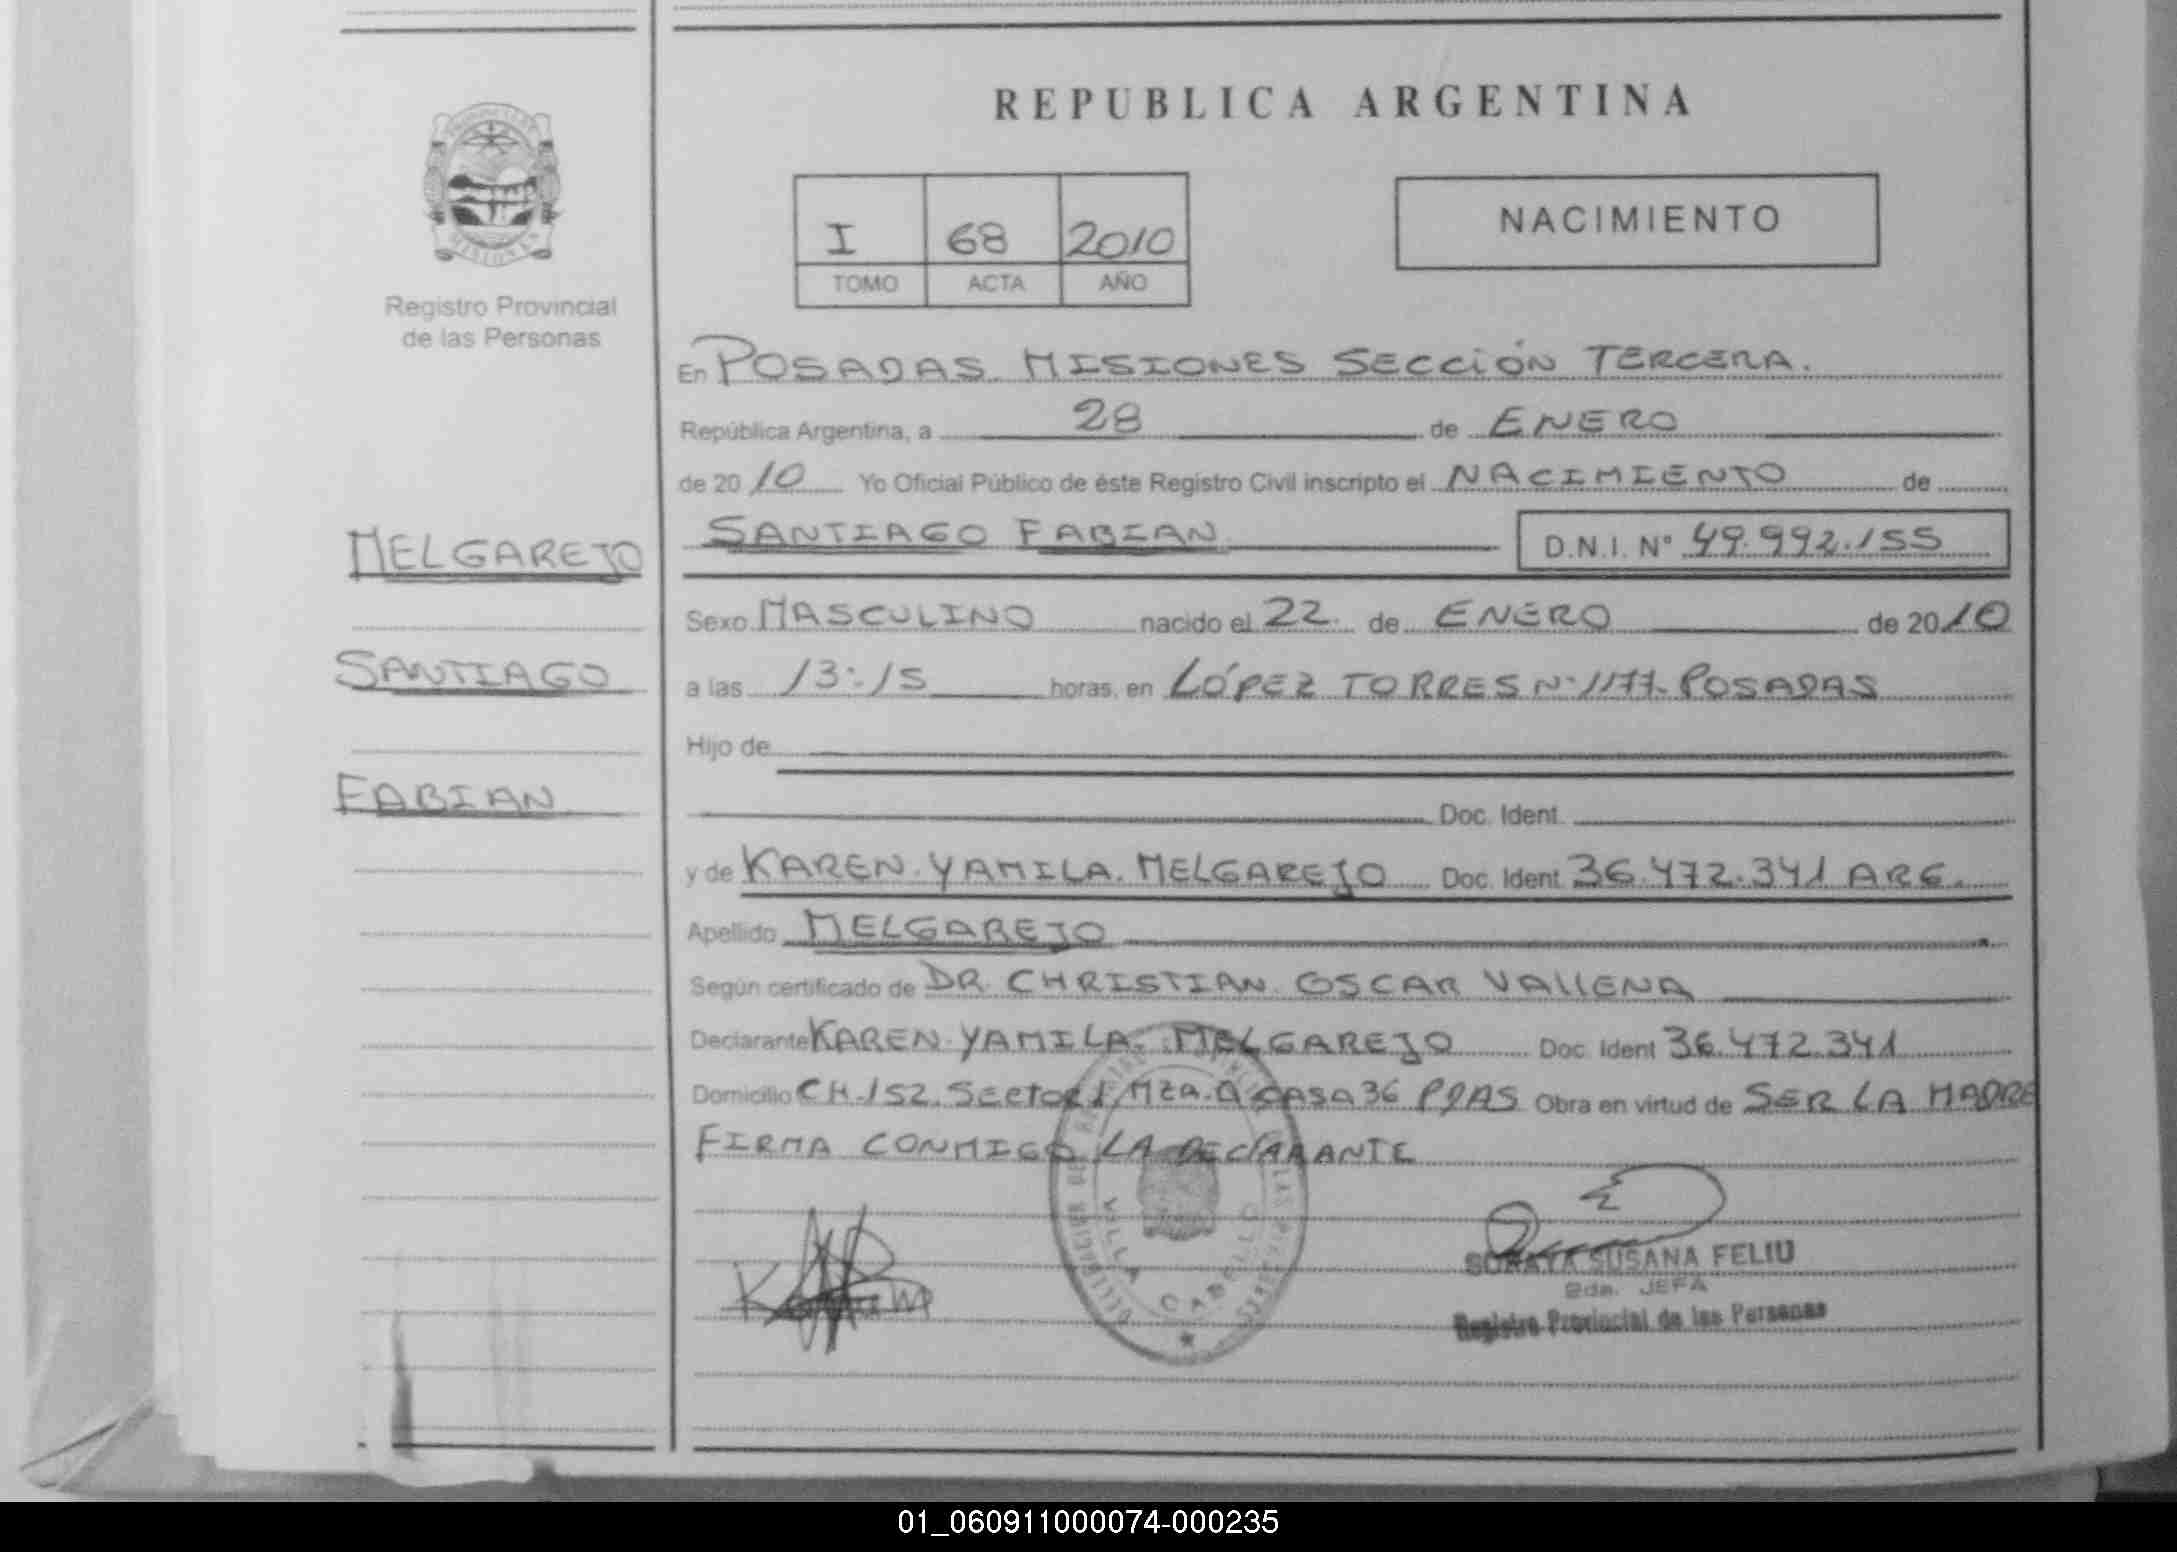 REPUBLICA ARGENTINA
I 68 2010
TOMO ACTA AÑO
NACIMIENTO
Registro Provincial
de las Personas
MELGAREJO
SANTIAGO
FABIAN
En POSADAS MISIONES SECCIÓN TERCERA.
República Argentina, a 28 de ENERO
de 2010 Yo Oficial Público de éste Registro Civil inscripto el NACIMIENTO de
SANTIAGO FABIAN D.N.I. Nº 49.992.155
Sexo MASCULINO nacido el 22 de ENERO de 2010
a las 13:15 horas, en LÓPEZ TORRES Nº 1177 POSADAS
Hijo de
Doc. Ident.
y de KAREN YAMILA MELGAREJO Doc. Ident 36.472.341 ARG.
Apellido MELGAREJO
Según certificado de DR. CHRISTIAN OSCAR VALLENA
Declarante KAREN YAMILA MELGAREJO Doc. Ident 36.472.341
Domicilio CH.152 Sector 1 Mza. Q CASA 36 PDAS Obra en virtud de SER LA MADRE
FIRMA CONMIGO LA DECLARANTE
VILLA CABELLO
SORAYA SUSANA FELIU
2da. JEFA
Registro Provincial de las Personas
01_060911000074-000235